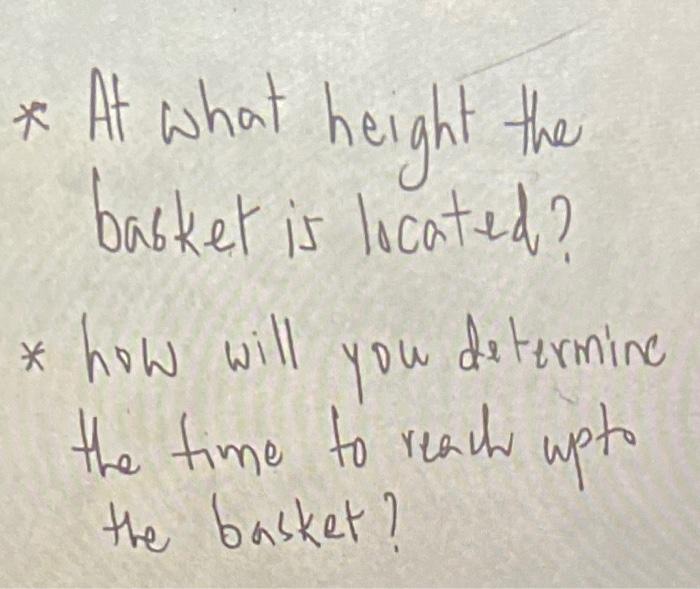 * At what height the
basket is located?
* how will you determine
the time to reach upto
the basket?